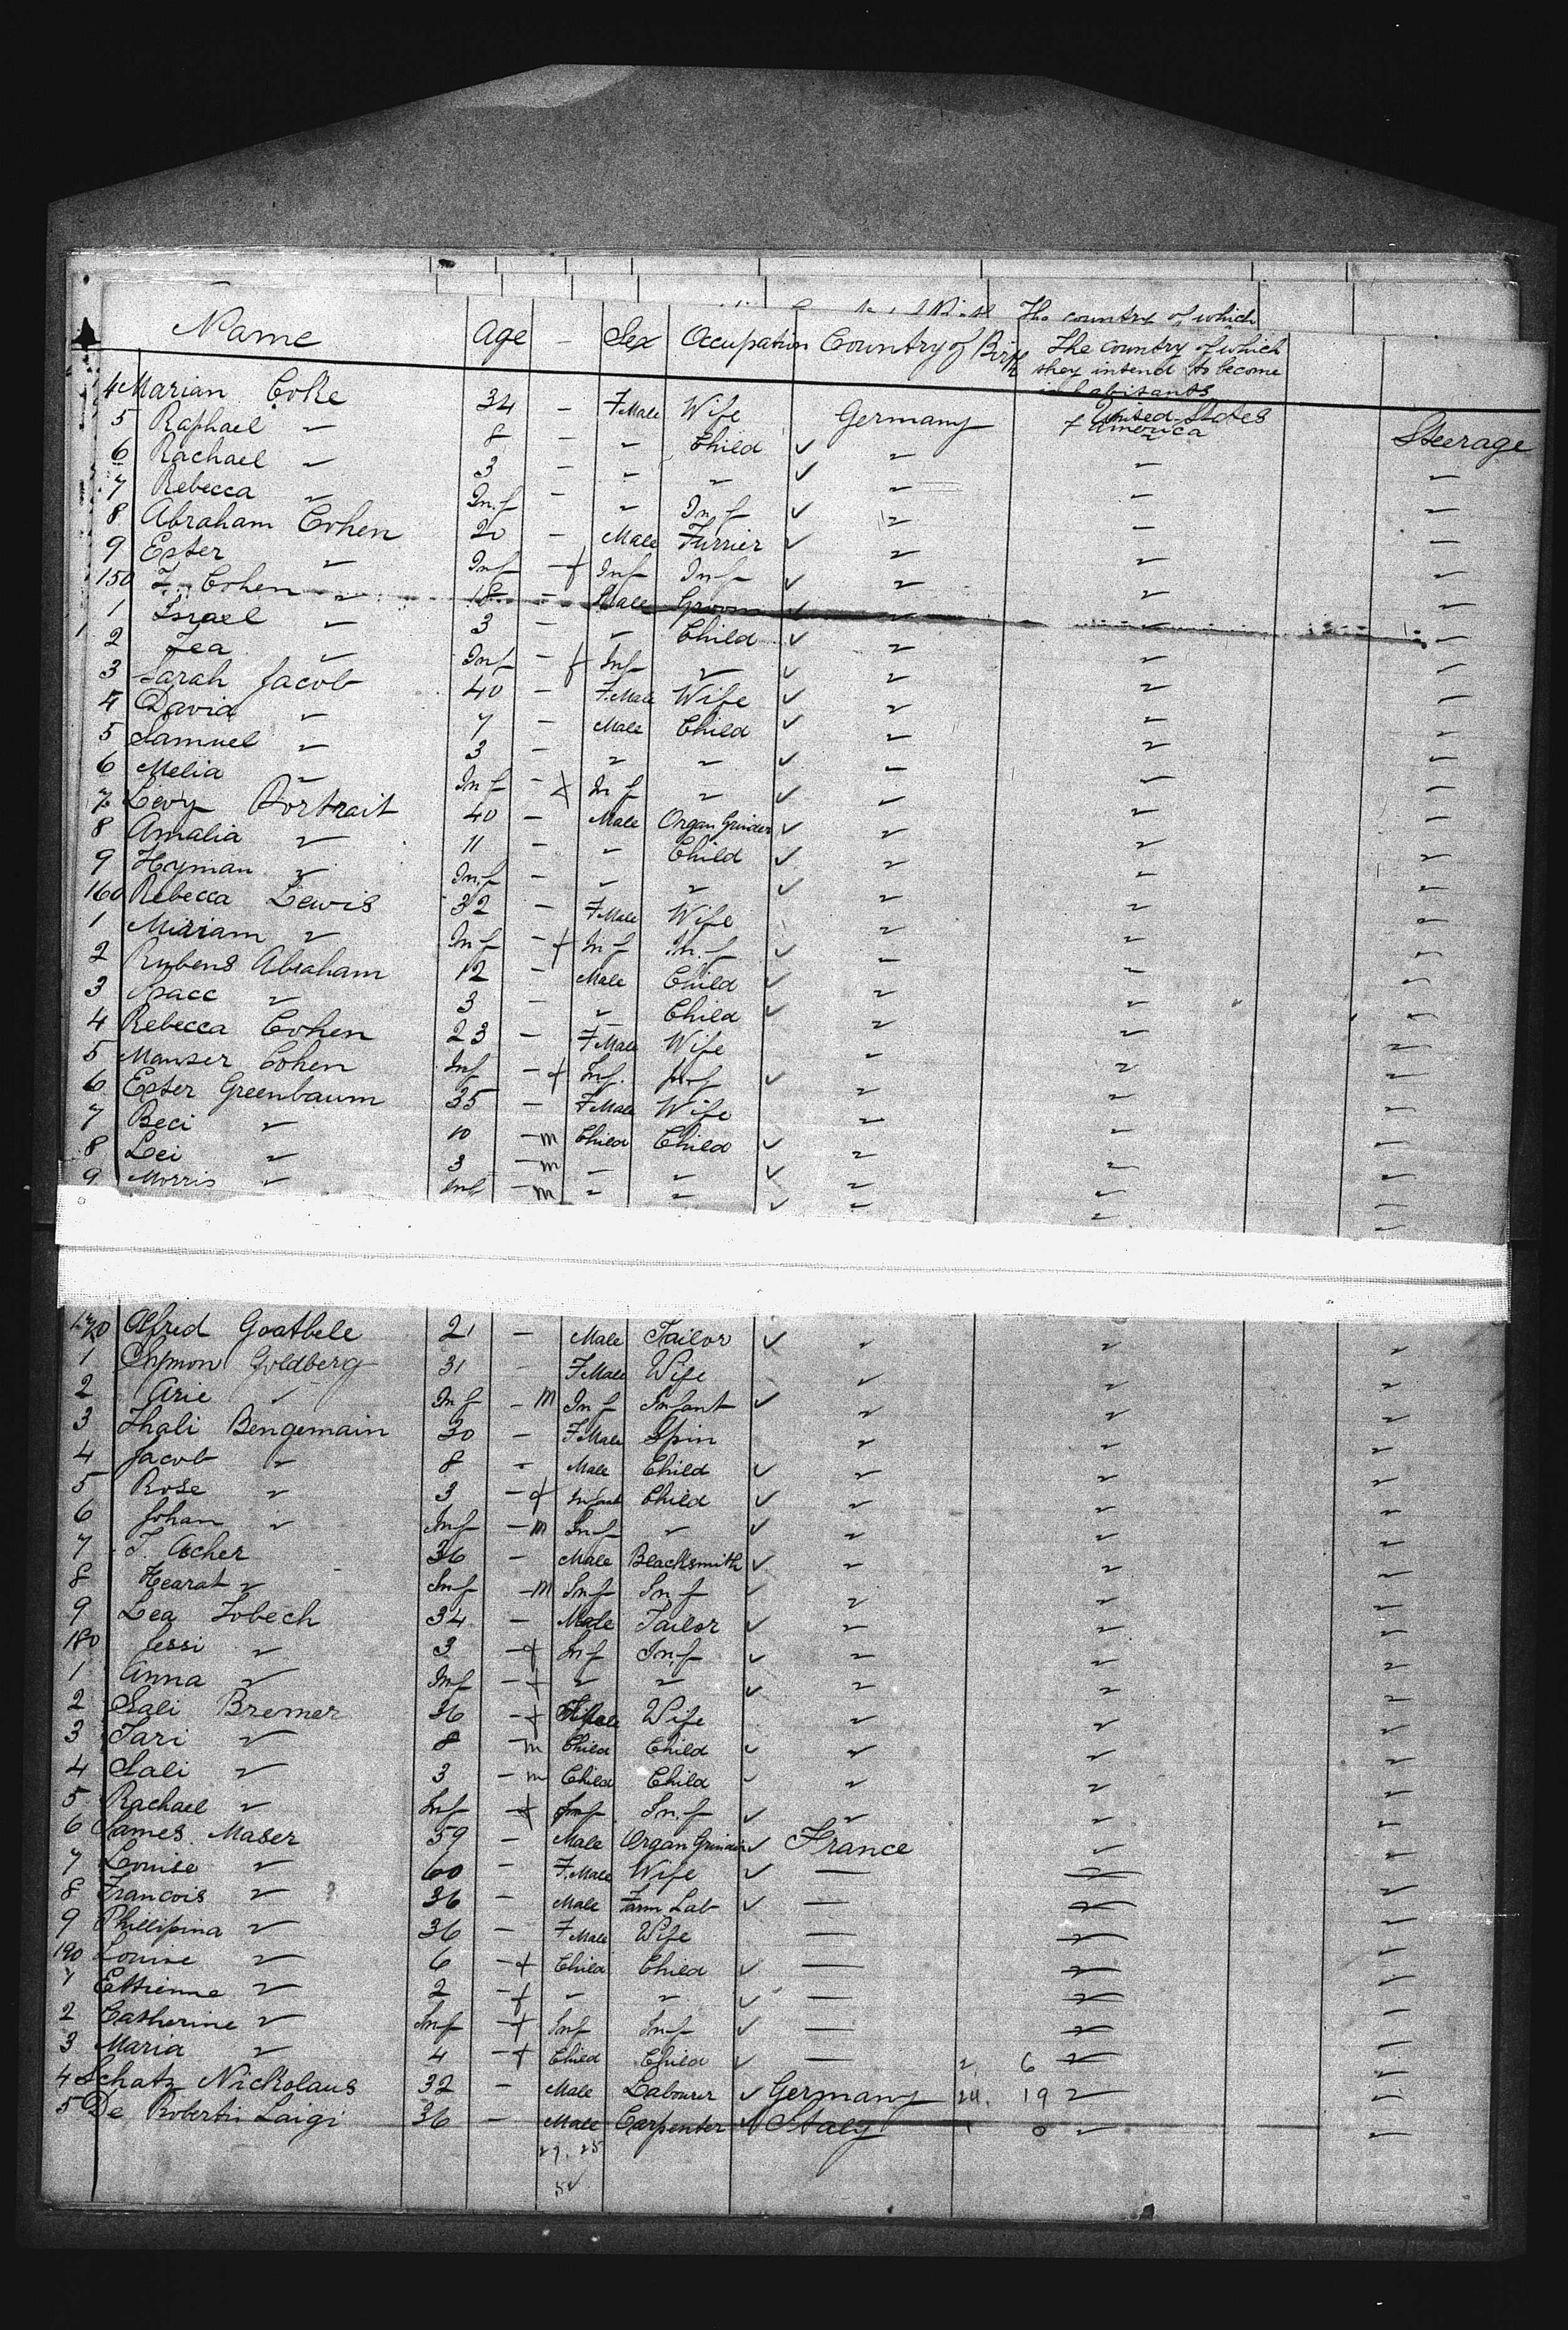 The country of which
Name Age - Sex Occupation Country of Birth The country of which they intend to become inhabitants
4 Marian Coke 34 - FMale Wife Germany United States of America Steerage
5 Raphael " 8 - " Child ✓ " " "
6 Rachael " 3 - " " ✓ " " "
7 Rebecca " Inf - " Inf ✓ " " "
8 Abraham Cohen 20 - Male Furrier ✓ " " "
9 Ester " Inf - f Inf Inf ✓ " " "
150 Cohen " 18 - Male Groom ✓ " " "
1 Israel " 3 - " Child ✓ " " "
2 Lea " Inf - f Inf " ✓ " " "
3 Sarah Jacob 40 - F.Male Wife ✓ " " "
4 David " 7 - Male Child ✓ " " "
5 Samuel " 3 - " " ✓ " " "
6 Melia " Inf - x Inf " ✓ " " "
7 Levy Portrait 40 - Male Organ Grinder ✓ " " "
8 Amalia " 11 - " Child ✓ " " "
9 Hyman " Inf - " " ✓ " " "
160 Rebecca Lewis 32 - FMale Wife " " "
1 Miriam " Inf - f Inf Inf ✓ " " "
2 Rubens Abraham 12 - Male Child ✓ " " "
3 Isacc " 3 - " Child ✓ " " "
4 Rebecca Cohen 23 - FMale Wife " " "
5 Manser Cohen Inf - f Inf. Inf ✓ " " "
6 Ester Greenbaum 35 - FMale Wife " " "
7 Beci " 10 - m Child Child ✓ " " "
8 Lei " 3 - m " " ✓ " " "
9 Morris " Inf - m " " ✓ " " "
170 Alfred Goatbele 21 - Male Tailor ✓ " " "
1 Symon Goldberg 31 - FMale Wife " " "
2 Arie " Inf - m Inf Infant ✓ " " "
3 Thali Bengemain 30 - FMale Spin " " "
4 Jacob " 8 - Male Child ✓ " " "
5 Rose " 3 - f Infant Child ✓ " " "
6 Johan " Inf - m Inf " ✓ " " "
7 J. Acher 36 - Male Blacksmith ✓ " " "
8 Hearat " Inf - m Inf Inf ✓ " " "
9 Lea Lobech 34 - Male Tailor ✓ " " "
180 Jessi " 3 - f Inf Inf ✓ " " "
1 Anna " Inf - f " " ✓ " " "
2 Sali Bremer 36 - f FMale Wife " " "
3 Tari " 8 - m Child Child ✓ " " "
4 Sali " 3 - m Child Child ✓ " " "
5 Rachael " Inf - f Inf Inf ✓ " " "
6 James Maser 59 - Male Organ Grinder ✓ France " "
7 Louise " 60 - F.Male Wife ✓ — " "
8 Francois " 36 - Male Farm Lab ✓ — " "
9 Phillipina " 36 - FMale Wife — " "
190 Louise " 6 - f Child Child ✓ — " "
1 Ettienne " 2 - f " " ✓ — " "
2 Catherine " Inf - f Inf Inf ✓ — " "
3 Maria " 4 - f Child Child ✓ — 2 6 " "
4 Schatz Nickolaus 32 - Male Labourer ✓ Germany 24. 19 " "
5 De Robertis Laigi 36 - Male Carpenter ✓ Italy 1 0 " "
29. 25